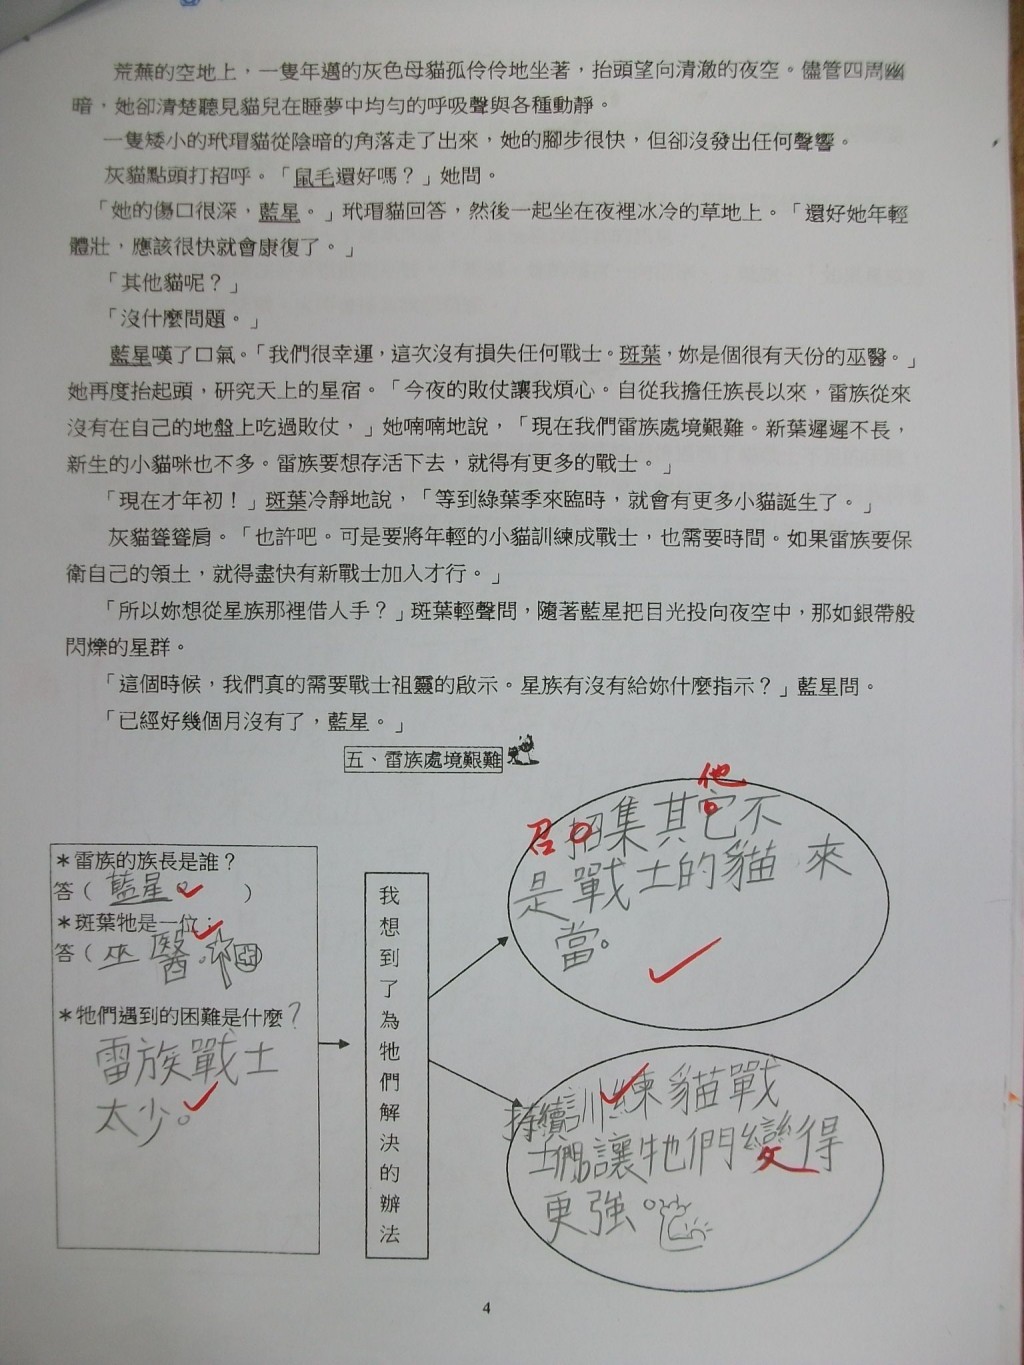 荒蕪的空地上，一隻年邁的灰色母貓孤伶伶地坐著，抬頭望向清澈的夜空。儘管四周幽
暗，她卻清楚聽見貓兒在睡夢中均勻的呼吸聲與各種動靜。
一隻矮小的玳瑁貓從陰暗的角落走了出來，她的腳步很快，但卻沒發出任何聲響。
灰貓點頭打招呼。「鼠毛還好嗎？」她問。
「她的傷口很深，藍星。」玳瑁貓回答，然後一起坐在夜裡冰冷的草地上。「還好她年輕
體壯，應該很快就會康復了。」
「其他貓呢？」
「沒什麼問題。」
藍星嘆了口氣。「我們很幸運，這次沒有損失任何戰士。斑葉，妳是個很有天份的巫醫。」
她再度抬起頭，研究天上的星宿。「今夜的敗仗讓我煩心。自從我擔任族長以來，雷族從來
沒有在自己的地盤上吃過敗仗，」她喃喃地說，「現在我們雷族處境艱難。新葉遲遲不長，
新生的小貓咪也不多。雷族要想存活下去，就得有更多的戰士。」
「現在才年初！」斑葉冷靜地說，「等到綠葉季來臨時，就會有更多小貓誕生了。」
灰貓聳聳肩。「也許吧。可是要將年輕的小貓訓練成戰士，也需要時間。如果雷族要保
衛自己的領土，就得盡快有新戰士加入才行。」
「所以妳想從星族那裡借人手？」斑葉輕聲問，隨著藍星把目光投向夜空中，那如銀帶般
閃爍的星群。
「這個時候，我們真的需要戰士祖靈的啟示。星族有沒有給妳什麼指示？」藍星問。
「已經好幾個月沒有了，藍星。」
五、雷族處境艱難
＊雷族的族長是誰？
答（藍星。）
＊斑葉牠是一位：
答（巫醫。
＊牠們遇到的困難是什麼？
雷族戰士
太少。
我想到了為牠們解決的辦法
他
召
招集其它不
是戰士的貓來
當。
持續訓練貓戰
士們，讓牠們變得
更強。
4